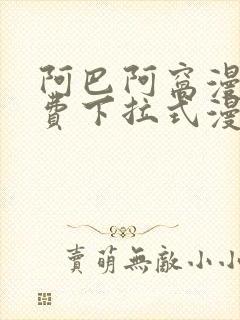 阿巴阿窩漫
費下拉式漫
賣萌無敵小小